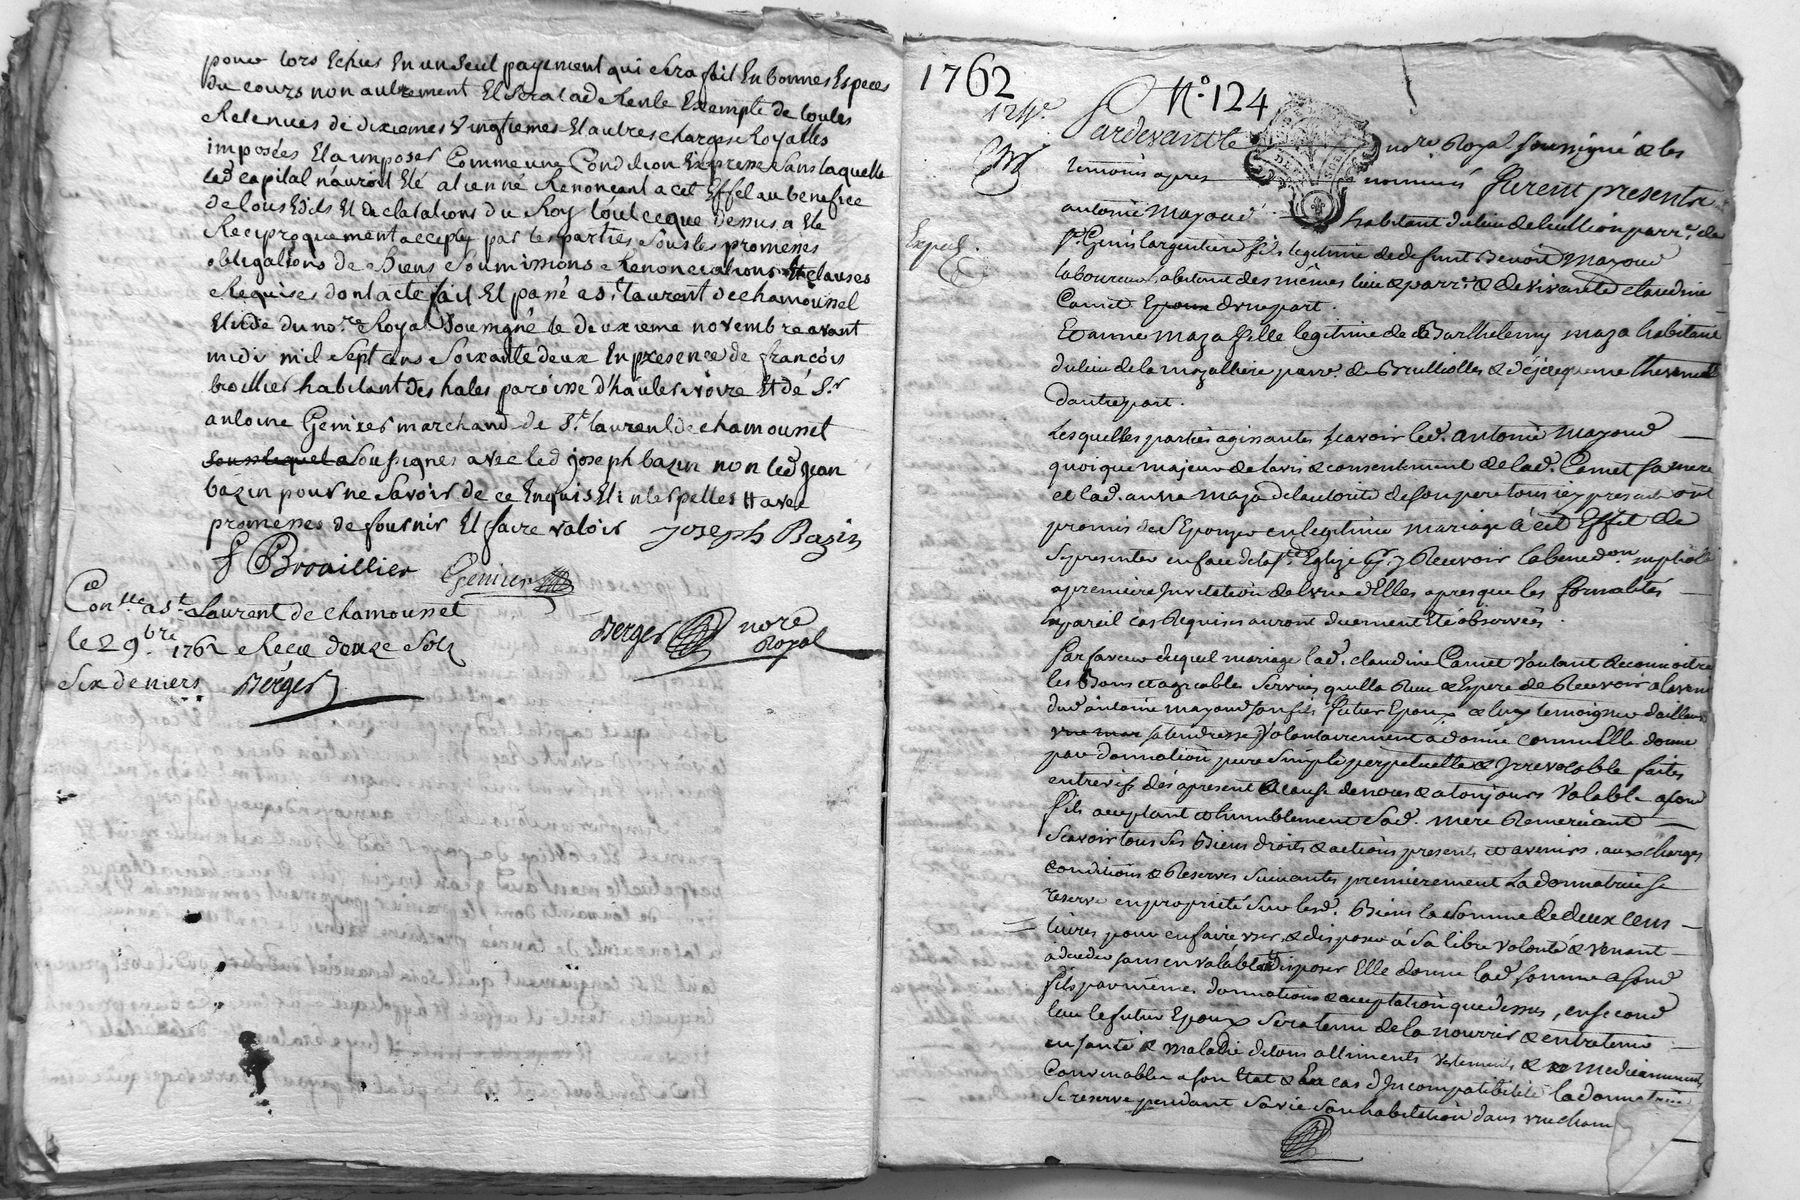 pour lors Echus En un seul payement qui sera fait En bonnes Especes
du cours non autrement Et sera lad Rente Exempte de toutes
Retenues de dixiemes vingtiemes Et autres charges Royalles
imposées Et a imposer Comme une Condition Expresse Sans laquelle
led capital n'auroit Eté aliené Renonçant a cet Effet au benefice
de tous Edits Et declarations du Roy tout ce que dessus a Eté
Reciproquement accepté par les parties Sous les promesses
obligations de Biens Soumissions Renonciations Et clauses
Requises dont acte fait Et passé a St laurent de chamousset
Etude du nore Royal Soussigné le deuxieme novembre avant
midi mil Sept cens Soixante deux En presence de françois
broillier habitant des hales paroisse d'hauterivoire Et de Sr
antoine Genixer marchand de St laurent de chamousset
Soussignés avec led joseph bazin non led jean
bazin pour ne Savoir de ce Enquis Et interpellés Et avec
promesses de fournir Et faire valoir Joseph Bazin
f Brouillier Genixer
Conlle a St Laurent de chamousset
le 2 9bre 1762 Reçu douze Sols
Six deniers Berger
Berger nore
Royal
1762 No. 124
124e.
Pardevant le nore Royal soussigné & les
temoins apres nommés furent presents
antoine mayoud habitant du lieu de parr. de
Expedié.
St. Genis largentiere fils legitime de defunt Benoit Mayoud
laboureur habitant des mêmes lieu & parr. & de vivante claudine
Camet Epoux d'une part.
Et anne maza fille legitime de Barthelemy maza habitant
du lieu de la mazalliere parr. de Brulliolles & de
d'autre part.
Lesquelles parties agissantes scavoir led. antoine Mayoud
quoique majeur de l'avis & consentement de lad. Camet sa mere
et lad. anne maza de l'autorité de son pere tous icy presents ont
promis de S'Epouser en legitime mariage à cet Effet de
se presenter en face de la Ste Eglise & y Recevoir la benedon. nuptiale
a premiere Invitation de l'une d'Elles apres que les formalités
En pareil cas Requises auront duement Eté observées.
En faveur duquel mariage lad. claudine Camet Voulant Reconnoitre
les Bons et agreables Services qu'elle a Reçu & Espere de Recevoir a lavenir
dud. antoine mayoud son fils futur Epoux & luy temoigner d'ailleurs
sa tendresse Volontairement a donné comm'Elle donne
par donnation pure Simple perpetuelle & Irrevocable faite
entrevifs dés apresent a Cause de noces & a toujours Valable a son
fils acceptant et humblement Sad. mere Remerciant
Scavoir tous Ses Biens droits & actions presents et avenirs, aux charges
conditions & Reserves Suivantes premierement La donnatrice Se
reserve en proprieté Sur lesd. Biens la Somme de deux cens
livres pour en faire user & disposer à Sa libre volonté & venant
à deceder sans en valablement disposer Elle donne lad. somme a son
fils par même donnation & acceptation que dessus, en second
lieu le futur Epoux Sera tenu de la nourrir & entretenir
en santé & maladie de tous alliments vetements & medicaments
Convenables a son Etat & En cas d'Incompatibilité la donnatrice
Se reserve pendant Sa vie Son habitation dans une cham